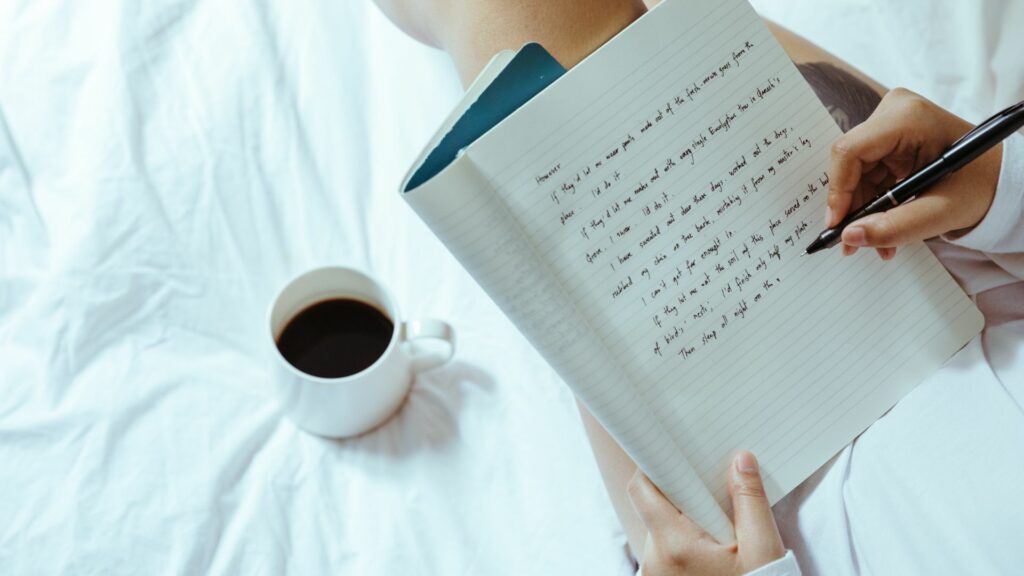 However
If they'd let me wear pants made out of the fresh-woven grass from the
place, I'd do it
If they'd let me makes out with every single Eucalyptus tree in
grove, I'd do it.
I have never sweated out dew these days, worked out the dregs,
rubbed my skin on tree bark, mistaking it for my master's leg
I can't get far enough in.
If they let me eat the soil of this place served on the bark
of birds' nests, I'd finish only half my plate
Then sleep all night on the